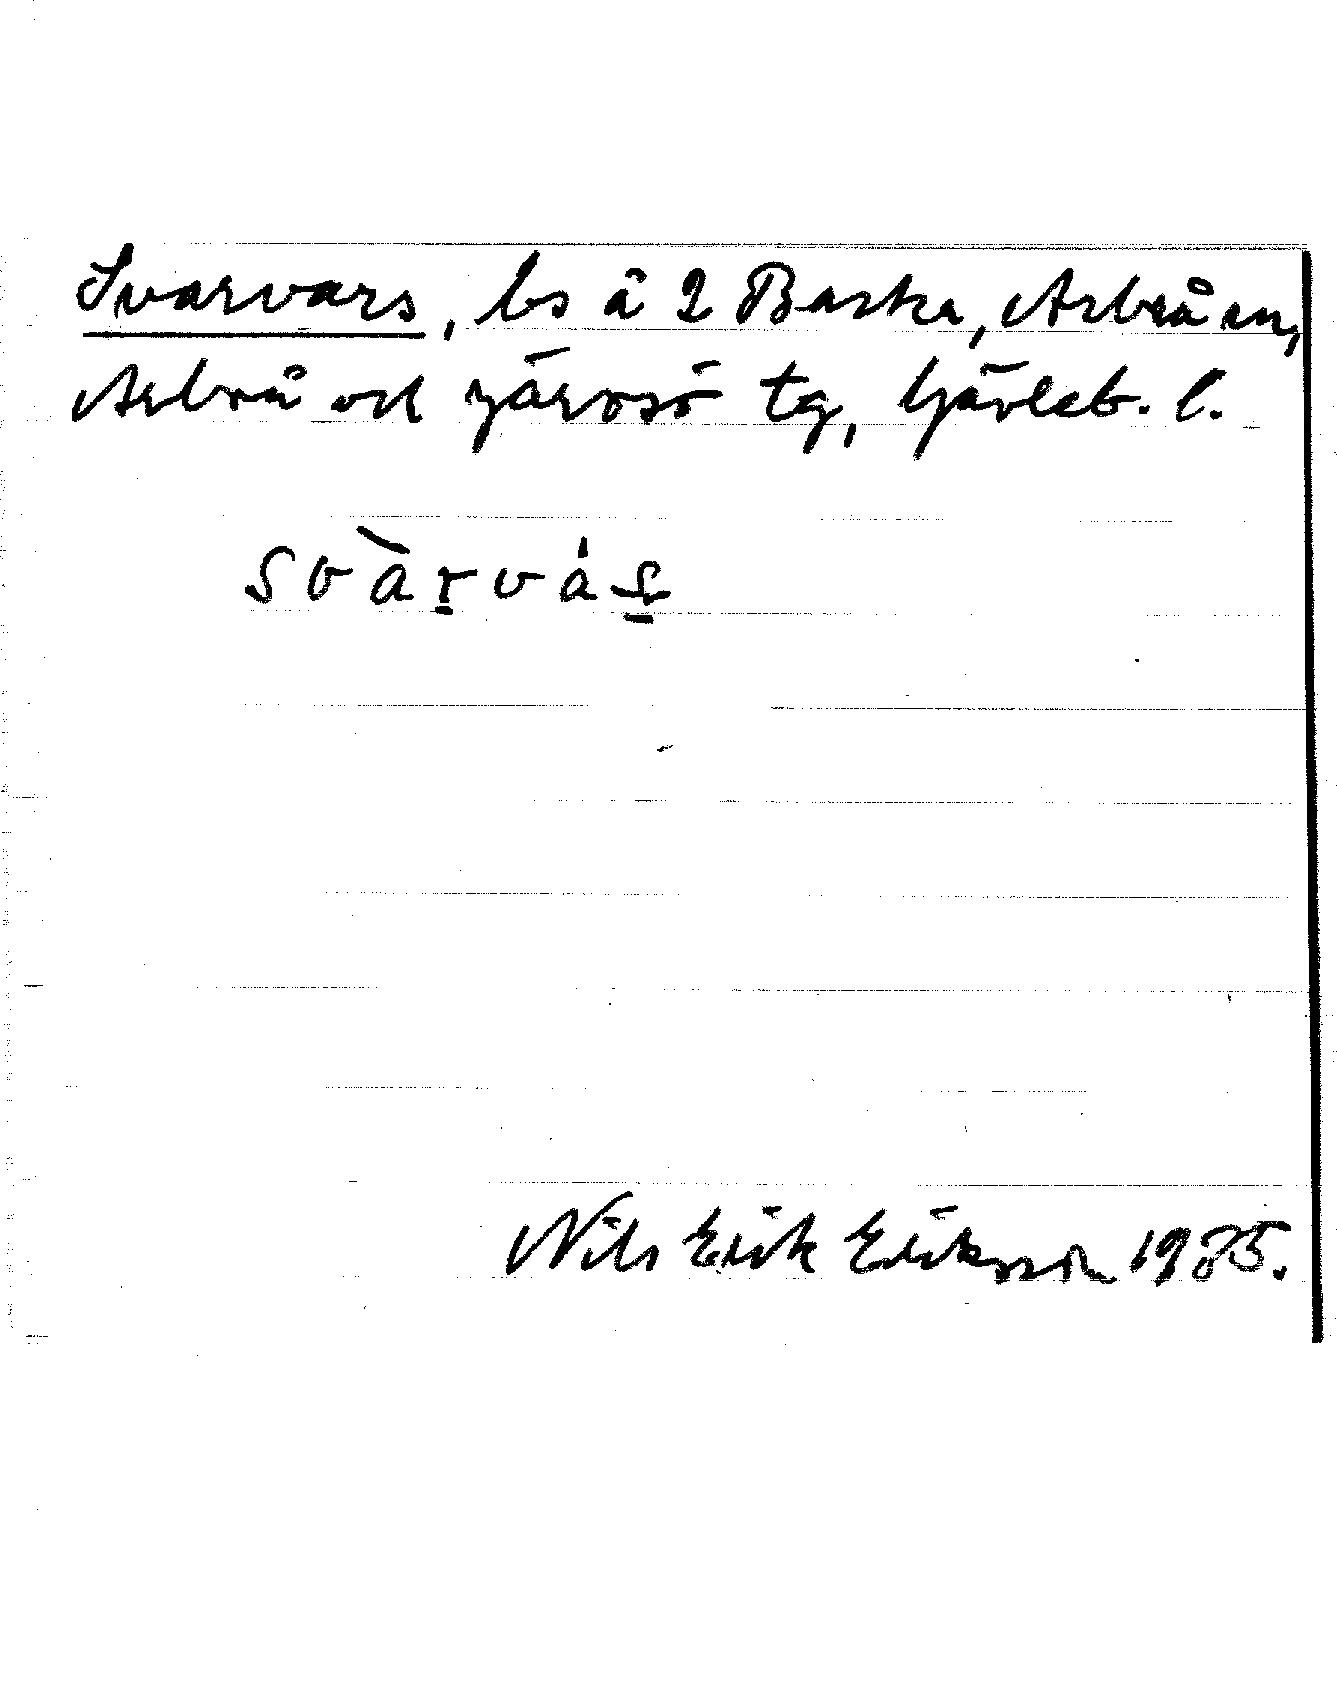 Svarvars, bs å 2 Baska, Arbrå sn,
Arbrå och Järvsö tg, Gävleb. l.
svàrvás̱
Nils Erik Eriksson 1985.